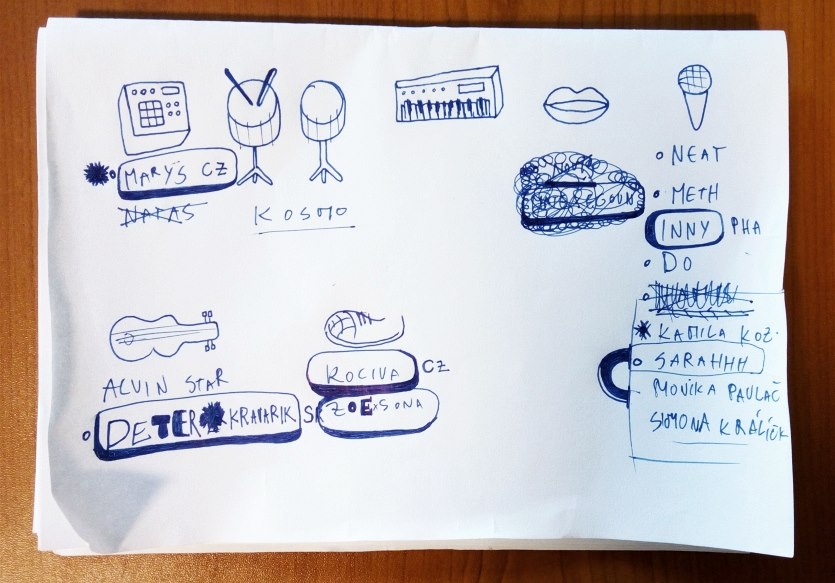 MARY'S CZ
NAPAS
KOSMO
NEAT
METH
INNY PHA
DO
KAMILA KOZ.
SARAHHH
MONIKA PAVLAČ
SIMONA KRÁLÍČK
ALVIN STAR
DETER KRAVARIK SR
KOCIVA CZ
ZOE SONA